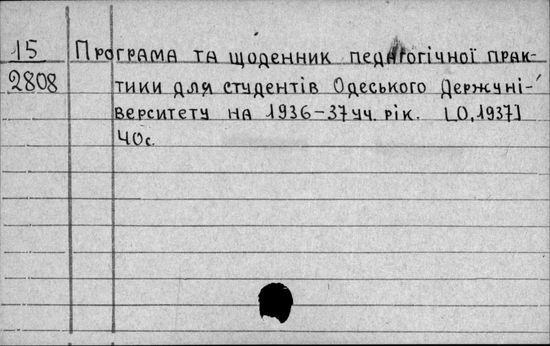 15
2808
Програма та щоденник педагогічної прак-
тики для студентів Одеського Держуні-
верситету на 1936-37 уч. рік. [О, 1937]
40с.